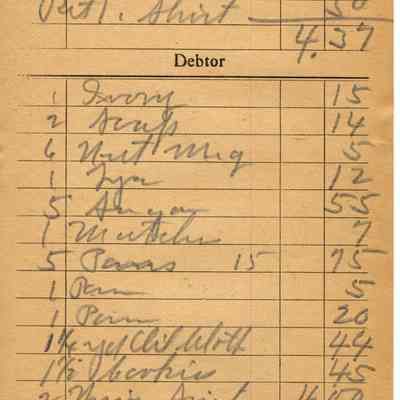 Shirt 50
4.37
Debtor
1 Ivory 15
2 Soap 14
6 Nut Meg 5
1 12
5 Sugar 55
1 Matches 7
5 Pears 15 75
1 5
1 20
1½ yd Oil Cloth 44
1½ Cookies 45
2